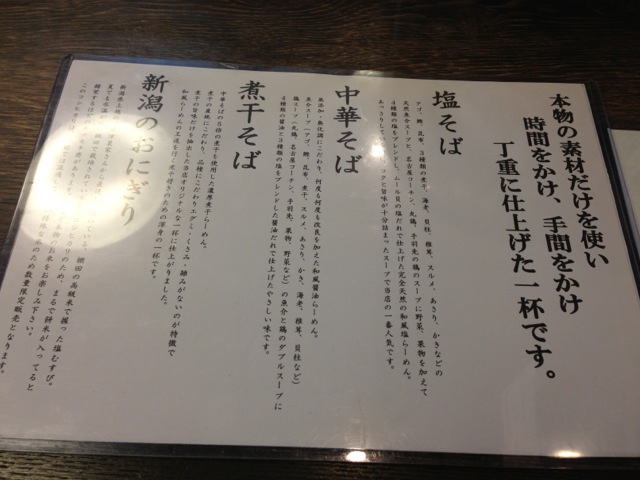 本物の素材だけを使い
時間をかけ、手間をかけ
丁重に仕上げた一杯です。
塩そば
アゴ、鰹、昆布、3種類の煮干、海老、貝柱、椎茸、スルメ、あさり、かきなどの
天然魚介スープと、名古屋コーチン、丸鶏、手羽先の鶏のスープに野菜、果物を加えて
4種類の塩をブレンドし、ムール貝の塩だれで仕上げた完全天然の和風塩らーめん。
あっさりしていて、コクと旨味が十分詰まったスープで当店の一番人気です。
中華そば
無添加・無化調にこだわり、何度も何度も改良を加えた和風醤油らーめん。
魚介スープ(アゴ、鰹、昆布、煮干、スルメ、あさり、かき、海老、椎茸、貝柱など)
鶏スープ(丸鶏、名古屋コーチン、手羽先、果物、野菜など)の魚介と鶏のダブルスープに
4種類の醤油と3種類の塩をブレンドした醤油だれで仕上げたやさしい味です。
煮干そば
中華そばの5倍の煮干を使用した濃厚煮干らーめん。
煮干の産地にこだわり、品種にこだわりエグミ・くさみ・雑みがないのが特徴で
煮干の旨味だけを抽出した当店オリジナルな一杯に仕上がりました。
和風らーめんの王道を行く、煮干好きのための渾身の一杯です。
新潟のおにぎり
棚田の高級米で握った塩むすび。
まるで餅米が入ってると
お米をお楽しみ下さい。
のため数量限定販売となります。